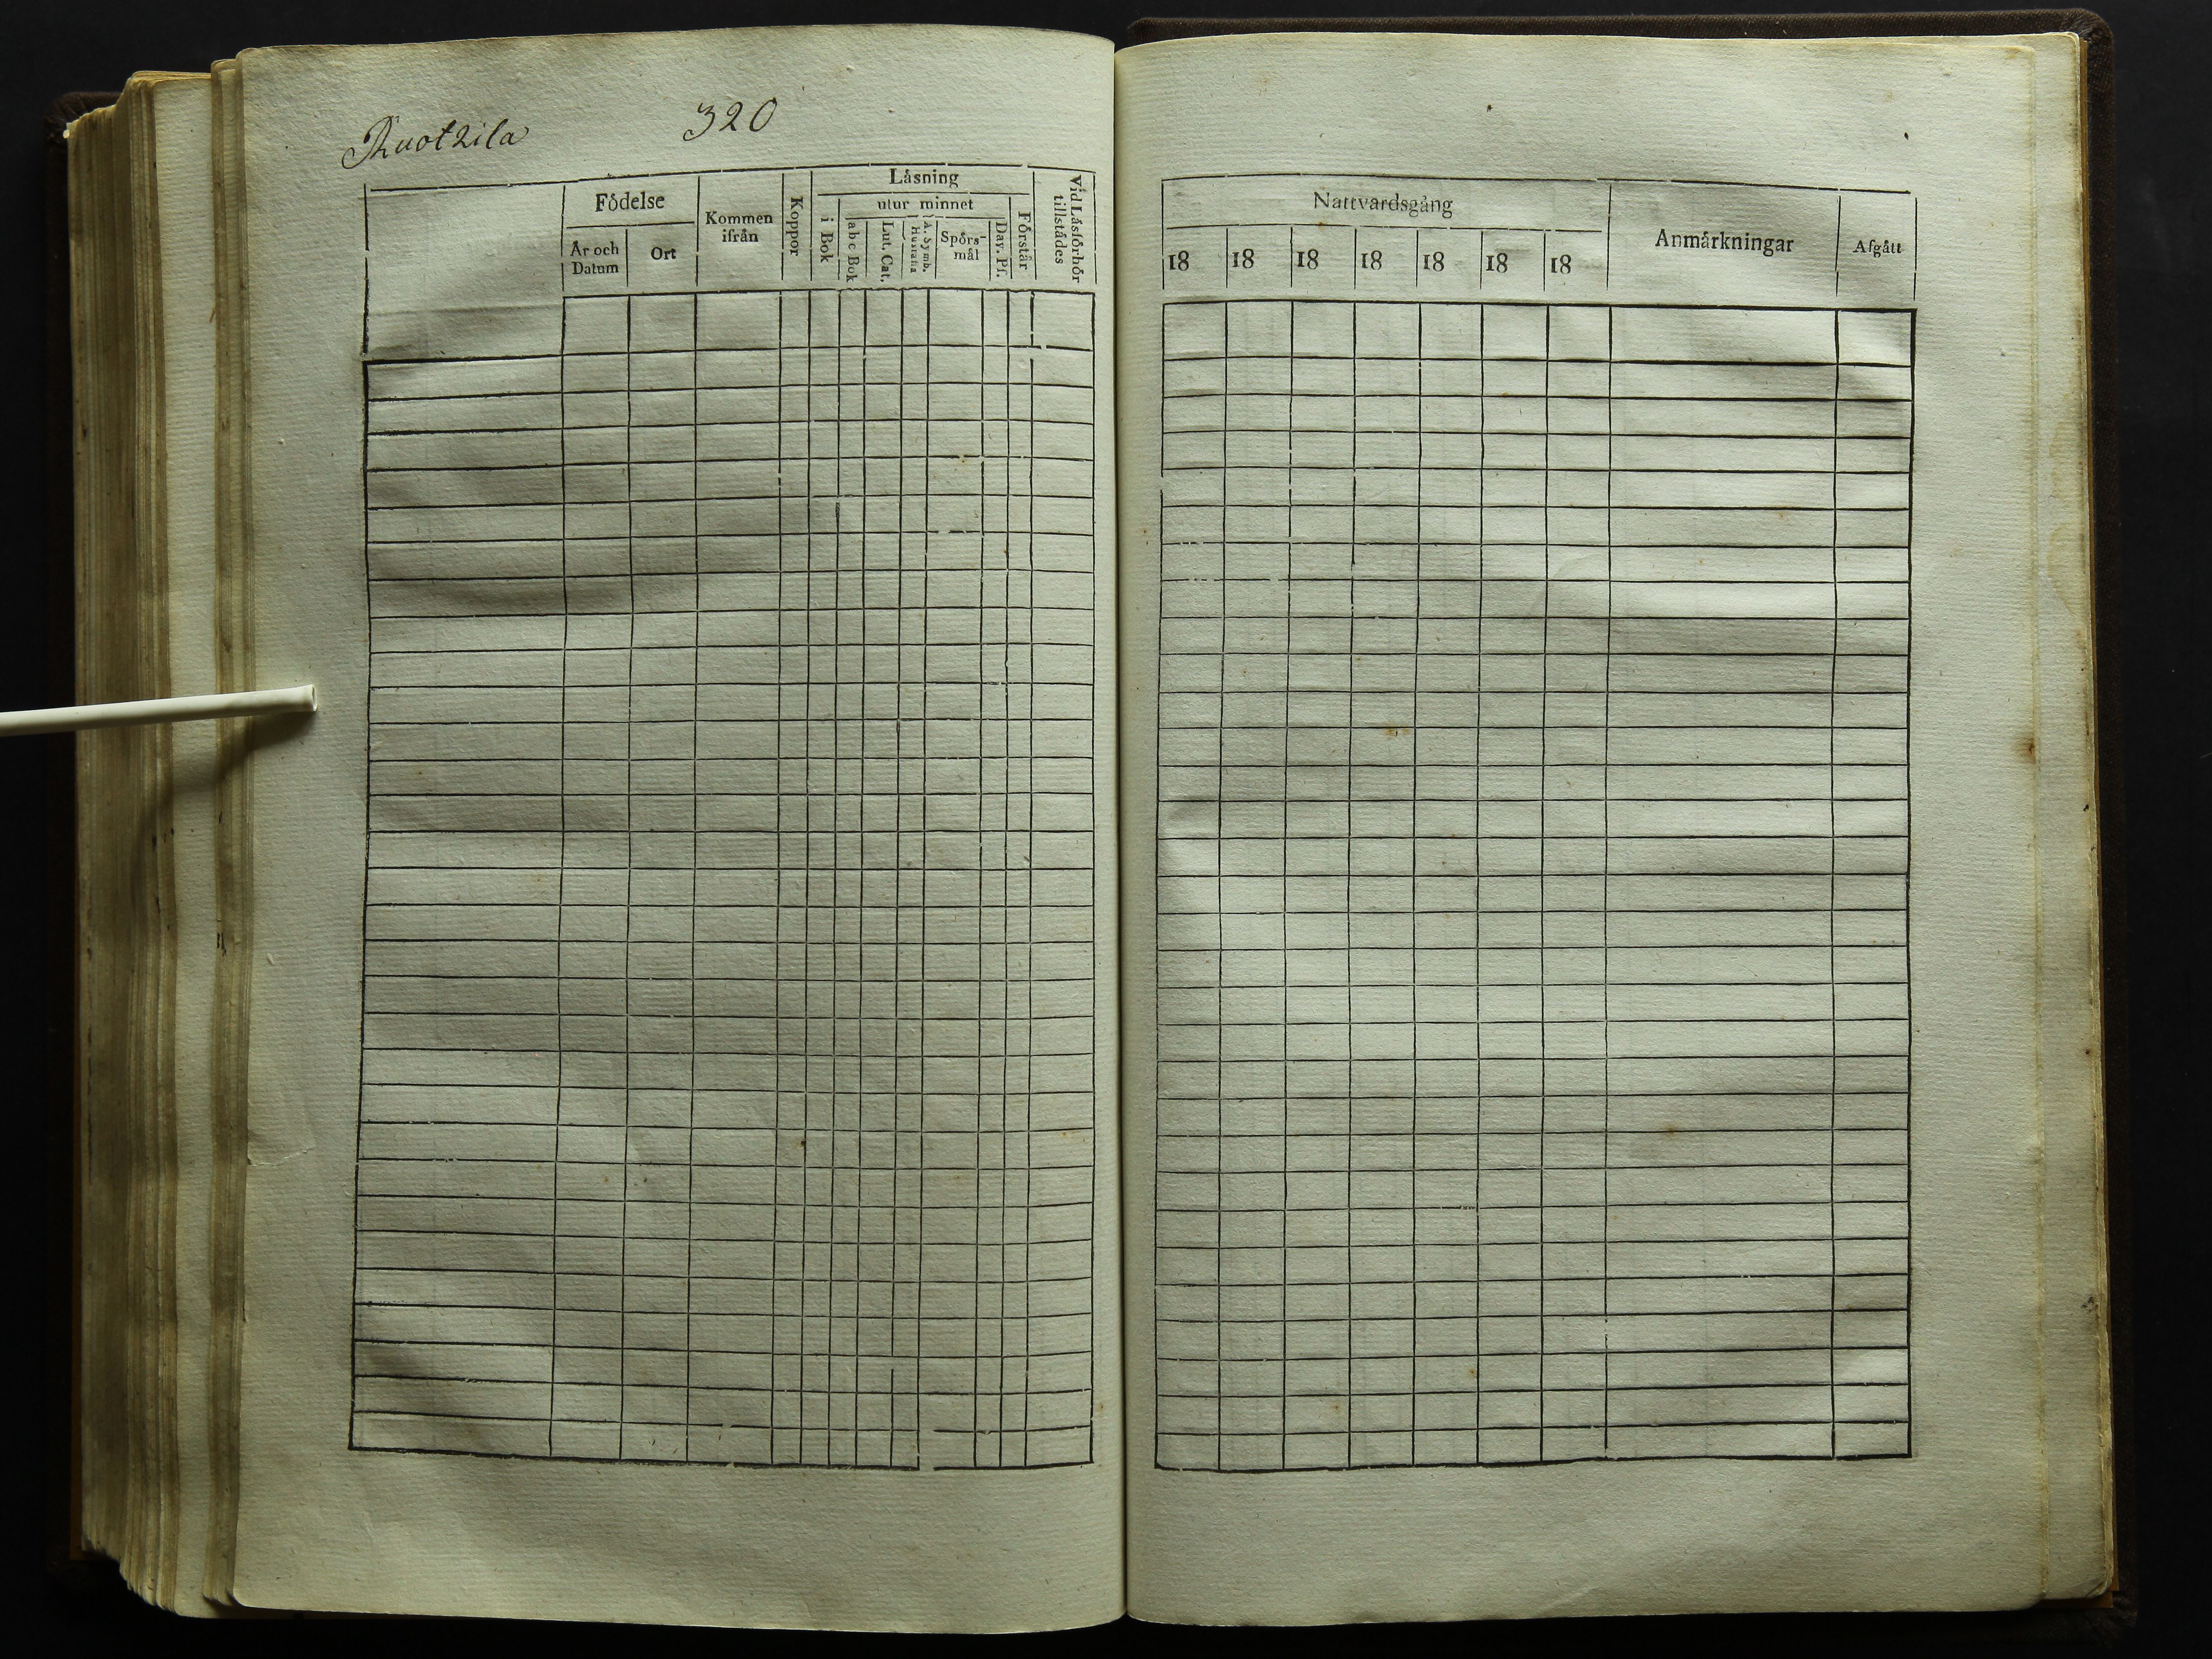 Ruotzila 320
Födelse
År och Datum
Ort
Kommen ifrån
Koppor
Läsning
i Bok
utur minnet
abc Bok
Lut. Cat.
A. Symb. Hustafla
Spörs-
mål
Dav. Ps.
Förstår
Vid Läsförhör tillstädes
Nattvardsgång
18 18 18 18 18 18 18
Anmärkningar
Afgått